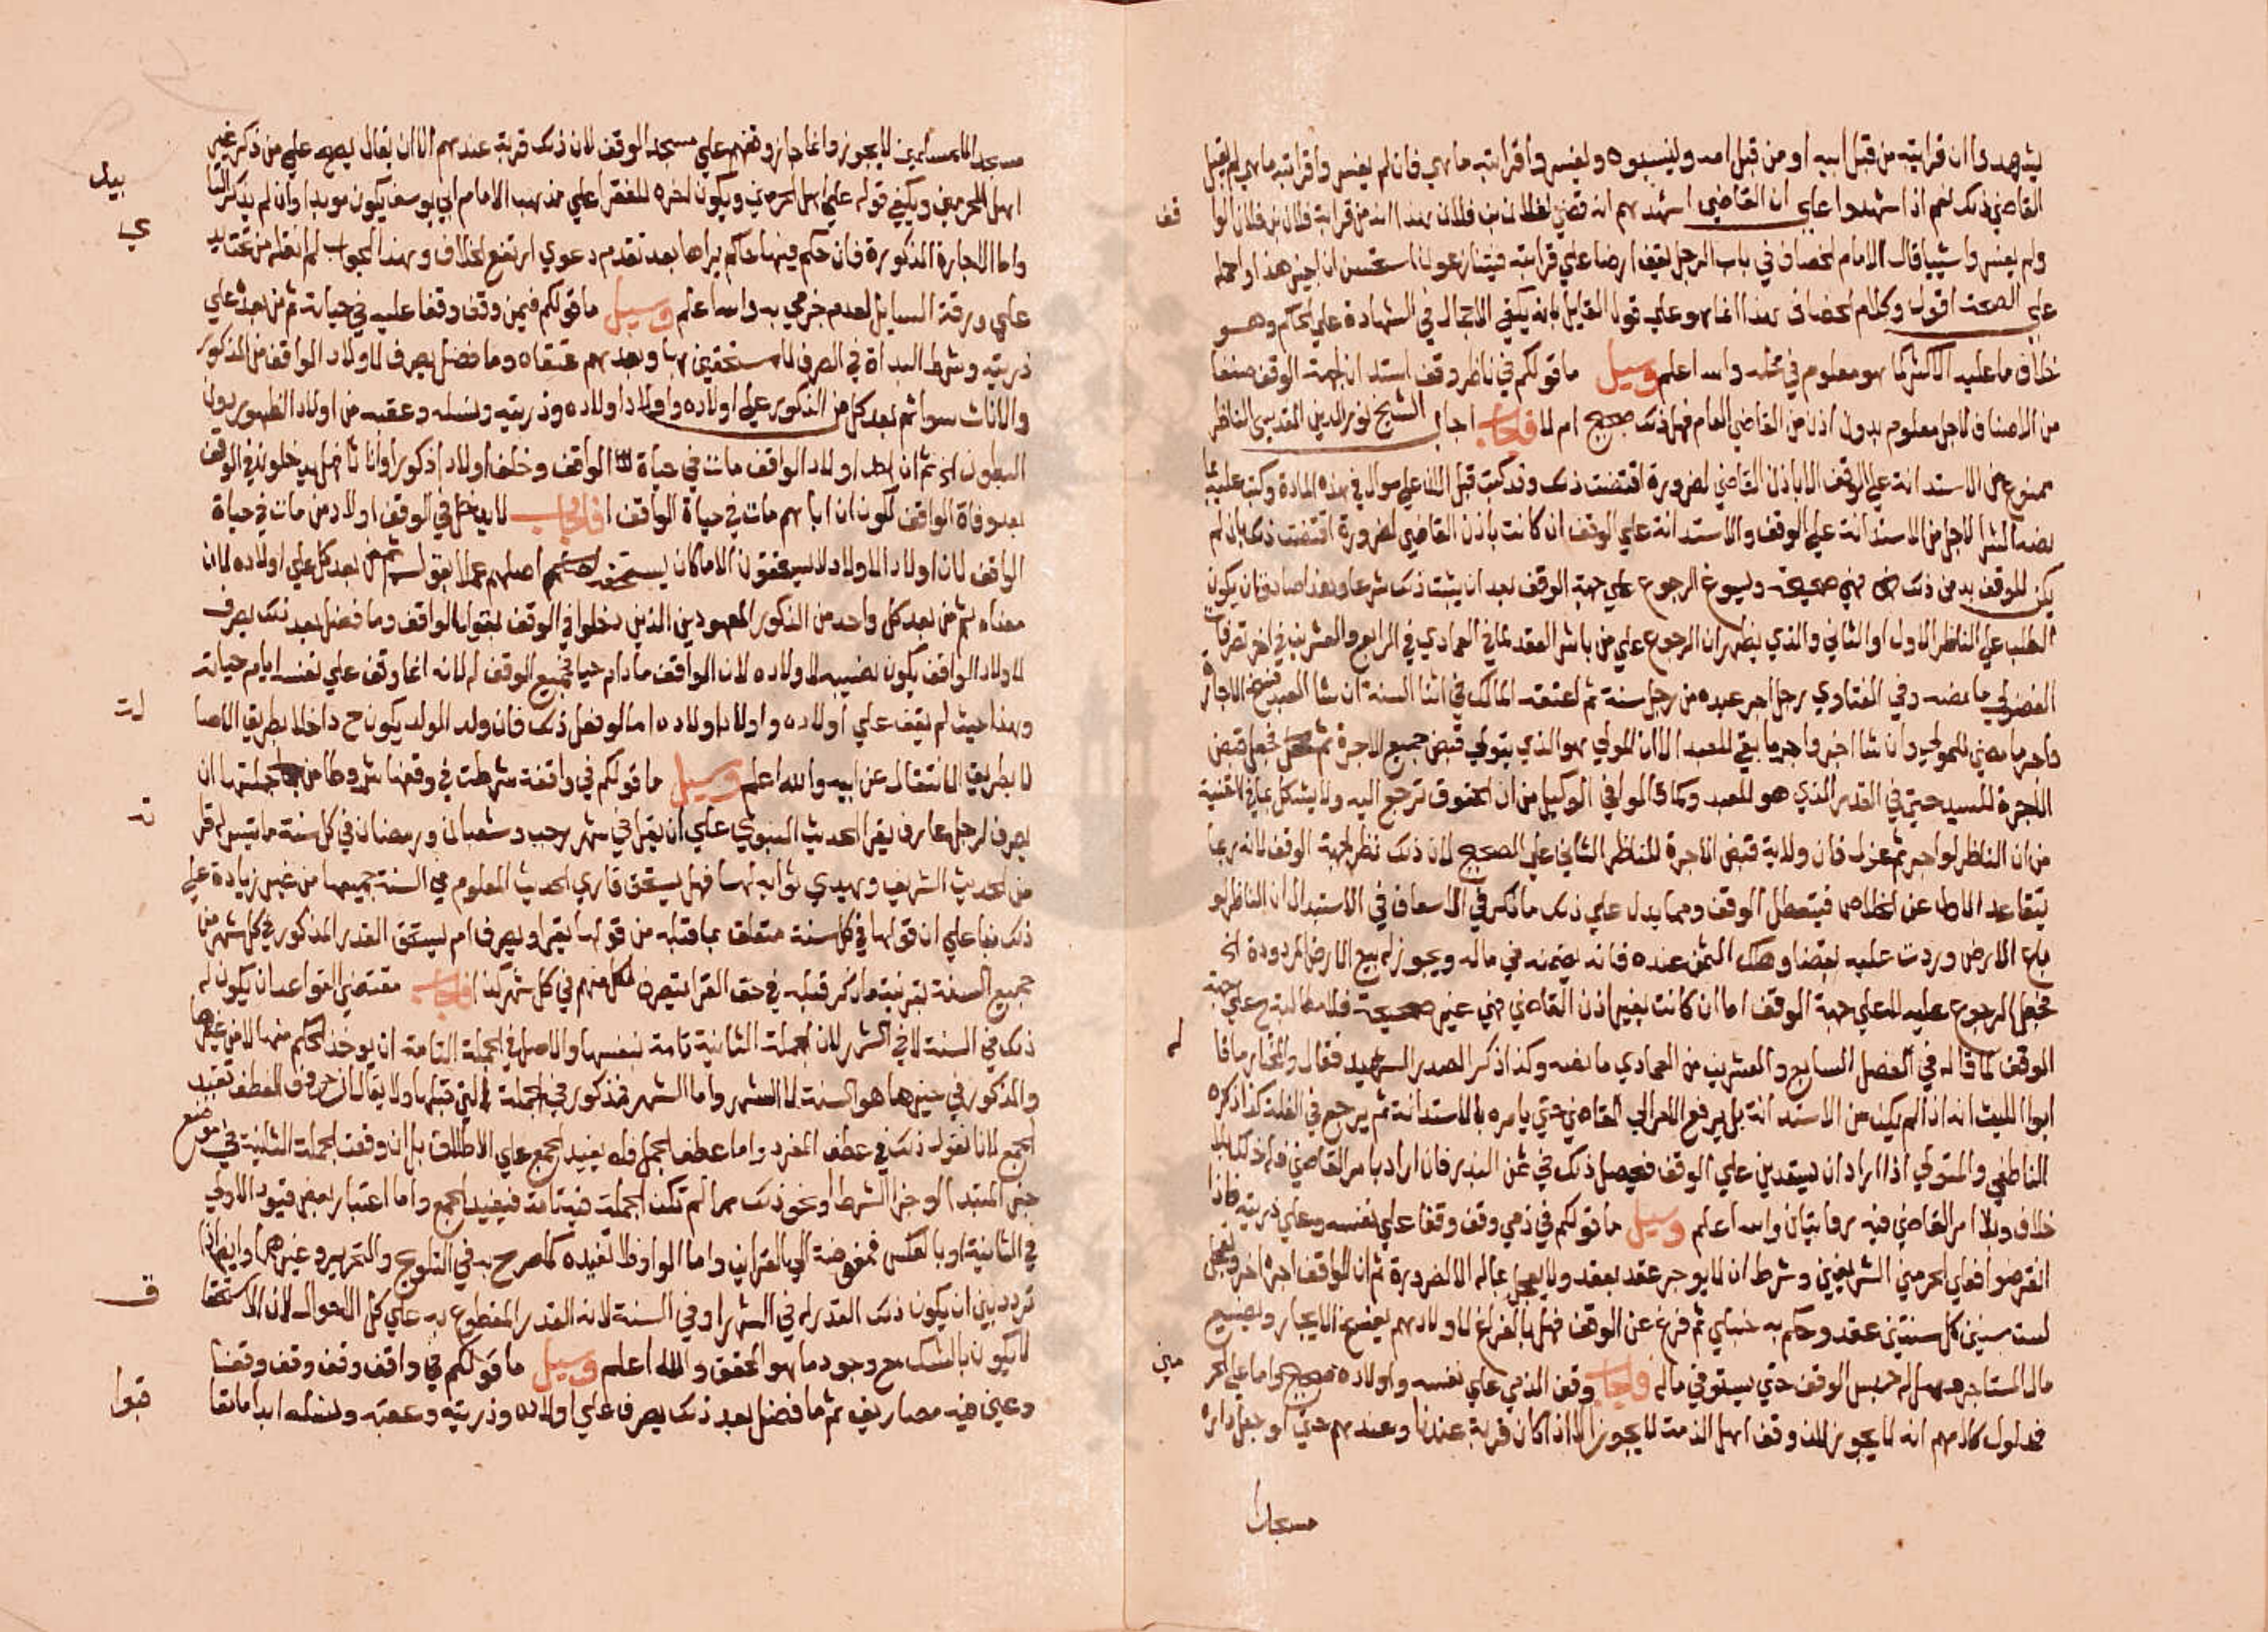 يشهدوا ان قرابته من قبل ابيه او من قبل امه ولينسبوه وليفسروا قرابته ما هي فان لم يفسروا قرابته ما هي لم يقبل
القاضي ذلك نعم اذا شهدوا علي ان القاضي اشهدهم انه قضي لفلان بن فلان بهذا انه من قرابة فلان بن فلان
ولم يفسروا شيا قال الامام الخصاف في باب الرجل يقف ارضا علي قرابته فيتنازعون استحسن ان اجيز هذا واحمله
علي الصحة اقول وكلام الخصاف هذا انما هو علي قول القايل بانه يكفي الاجمال في الشهادة علي الحكم وهو
خلاف ما عليه الاكثر كما هو معلوم في محله والله اعلم وسيل ما قولكم في ناظر وقف استدان لجهة الوقف صنفا
من الاصناف لاجل معلوم بدون اذن من القاضي العام فهل ذلك صحيح ام لا فاجاب اجاب الشيخ نور الدين المقدسي الناظر
ممنوع من الاستدانة علي الوقف الا باذن القاضي لضرورة اقتضت ذلك وقد كتب قبل علي سوال في هذه المادة وكتب عليه
نصه الشرا لاجل من الاستدانة علي الوقف والاستدانة علي الوقف ان كانت باذن القاضي لضرورة اقتضت ذلك بان لم
يكن للوقف بد من ذلك فهي صحيحة ويسوغ الرجوع علي جهة الوقف بعد ان يثبت ذلك شرعا وبعد
الطلب علي الناظر الاول او الثاني والذي يظهر ان الرجوع علي من باشر العقد لما في العمادي في الرابع والعشرين في اخر تصرفات
الفضولي ما نصه وفي الفتاوي رجل اجر عبده من رجل سنة ثم اعتقه المالك في اثنا السنة ان شا العبد فسخ الاجارة
واجر ما مضي للمولي وان شا اجز واجر ما بقي للعبد الا ان المولي هو الذي يتولي قبض جميع الاجرة ثم فجعل قبض
الاجرة للسيد حتي في القدر الذي هو للعبد وكما في الوكيل من ان الحقوق ترجع اليه ولا يشكل بما في القنية
من ان الناظر لو اجر ثم عزل فان ولاية قبض الاجرة للناظر الثاني علي الصحيح لان ذلك نظر لجهة الوقف لانه ربما
يتقاعد عن الخلاص فيتعطل الوقف ومما يدل علي ذلك ما ذكر في الاسعاف في الاستبدال ان الناظر لو
باع الارض وردت عليه بقضا وهلك الثمن عنده فانه يضمنه في ماله ويجوز له بيع الارض المردودة الخ
فجعل الرجوع عليه لا علي جهة الوقف اما ان كانت بغير اذن القاضي فهي غير صحيحة فلا مطالبة ح علي جهة
الوقف لما قاله في الفصل السابع والعشرين من العمادي ما نصه وكذا ذكر الصدر الشهيد فقال والمختار ما قا
له
ابوا الليث انه اذا لم يكن من الاستدانة بل يرفع الامر الي القاضي حتي يامره بالاستدانة ثم يرجع في الغلة كذا ذكره
الناطفي والمتولي اذا اراد ان يستدين علي الوقف فيحصل ذلك في ثمن البذر فان اراد بامر القاضي فله ذلك بلا
خلاف وبلا امر القاضي فيه روايتان والله اعلم وسيل ما قولكم في ذمي وقف وقفا علي نفسه وعلي ذريته فاذا
انقرضوا فعلي الحرمين الشريفين وشرط ان لا يوجر عقد بعقد ولا يعجل بماله الا لضرورة ثم ان الواقف اجره اخر
لست سنين كل سنتين عقد وحكم به حنبلي ثم فرغ عن الوقف فهل بالفراغ لاولادهم يفسخ الايجار ويضيع
مال المستاجر ام هل له حبس الوقف حتي يستوفي ماله فاجاب وقف الذمي علي نفسه واولاده صحيح واما علي الحر
مين
فمدلول كلامهم انه لا يجوز لان وقف اهل الذمة لا يجوز الا اذا كان قربة عندنا وعندهم حتي لو جعل داره
مسجدا
مسجدا للمسلمين لا يجوز وانما جاز وقفهم علي مسجد الوقف لان ذلك قربة عندهم الا ان يقال يصح علي من ذكر غير
اهل الحرمين ويكفي قوله علي اهل الحرمين ويكون اخره للفقرا علي مذهب الامام ابي يوسف يكون موبدا وان لم يذكر التا
بيد
واما الاجارة المذكورة فان حكم فيها حاكم يراها بعد تقدم دعوي ارتفع الخلاف وهذا الجواب لم انقله من
علي ورقة السايل لعدم جزمي به والله اعلم وسيل ما قولكم فيمن وقف وقفا عليه في حياته ثم من بعده علي
ذريته وشرط البداة في الصرف لا مستحقين بها وبعدهم عتقاه وما فضل يصرف لاولاد الواقف من الذكور
والاناث سوا ثم بعد كل من الذكور علي اولاده واولاد اولاده وذريته ونسله وعقبه من اولاد الظهور دون
البطون الخ ثم ان احد اولاد الواقف مات في حياة الواقف وخلف اولادا ذكورا واناثا فهل يدخلون في الوقف
بعد وفاة الواقف لكون ان اباهم مات في حياة الواقف ا فاجاب لا يدخل في الوقف اولاد من مات في حياة
الواقف لان اولاد الاولاد لا يستحقون الا ما كان يستحقه اصلهم عملا بقوله ثم من بعد كل علي اولاده لان
معناه ثم من بعد كل واحد من الذكور المعهودين الذين دخلوا في الوقف بقول الواقف وما فضل بعد ذلك يصرف
لاولاد الواقف يكون نصيبه لاولاده لان الواقف ما دام حيا فجميع الوقف له لانه انما وقف علي نفسه ايام حياته
وهذا حيث لم يقف علي اولاده واولاد اولاده اما لو فعل ذلك فان ولد الولد يكون ح داخلا بطريق الاصا
لة
لا بطريق الانتقال عن ابيه والله اعلم وسيل ما قولكم في واقفة شرطت في وقفها شروطا من جملتها ان
يصرف لرجل عارف يقرا الحديث النبوي علي ان يقرا في شهر رجب وشعبان ورمضان في كل سنة ما تيسر له
من الحديث الشريف ويهدي ثوابه لها فهل يستحق قاري الحديث المعلوم في السنة جميعها من غير زيادة علي
ذلك بنا علي ان قولها في كل سنة متعلق بما قبله من قولها يقرا ويصرف ام يستحق القدر المذكور في كل شهر من
جميع السنة بقرينة ما ذكر قبله في حق القرا يصرف لكل منهم في كل شهر كذا فاجاب مقتضي القواعد ان يكون له
ذلك في السنة لا في الشهر لان الجملة الثانية تامة بنفسها والاصل في الجملة التامة ان يوخذ الحكم منها لا من غيرها
والمذكور في حيزها هو السنة لا الشهر واما الشهر فمذكور في الجملة التي قبلها ولا يقال ان حروف العطف تفيد
الجمع لانا نقول ذلك في عطف المفرد واما عطف الجمل فلا يفيد الجمع علي الاطلاق بل ان وقعت الجملة الثانية في موضع
خبر المبتدا او جزا الشرط او نحو ذلك مما لم تكن الجملة فيه تامة فيفيد الجمع واما اعتبار بعض قيود الاولي
في الثانية او بالعكس فمفوضة الي القراين واما الواو فلا تفيده كما صرح به في التلويح والتحرير وغيرهما وايضا اذا
تردد بين ان يكون ذلك القدر له في الشهر او في السنة لانه القدر المقطوع به علي كل الاحوال لان الاستحقا
ق
لا يكون بالشك مع وجود ما هو المحقق والله اعلم وسيل ما قولكم في واقف وقف وقف وقفا
وعين فيه مصاريف ثم ما فضل بعد ذلك يصرف علي اولاده وذريته وعقبه ونسله ابدا ما بقا
قبوا